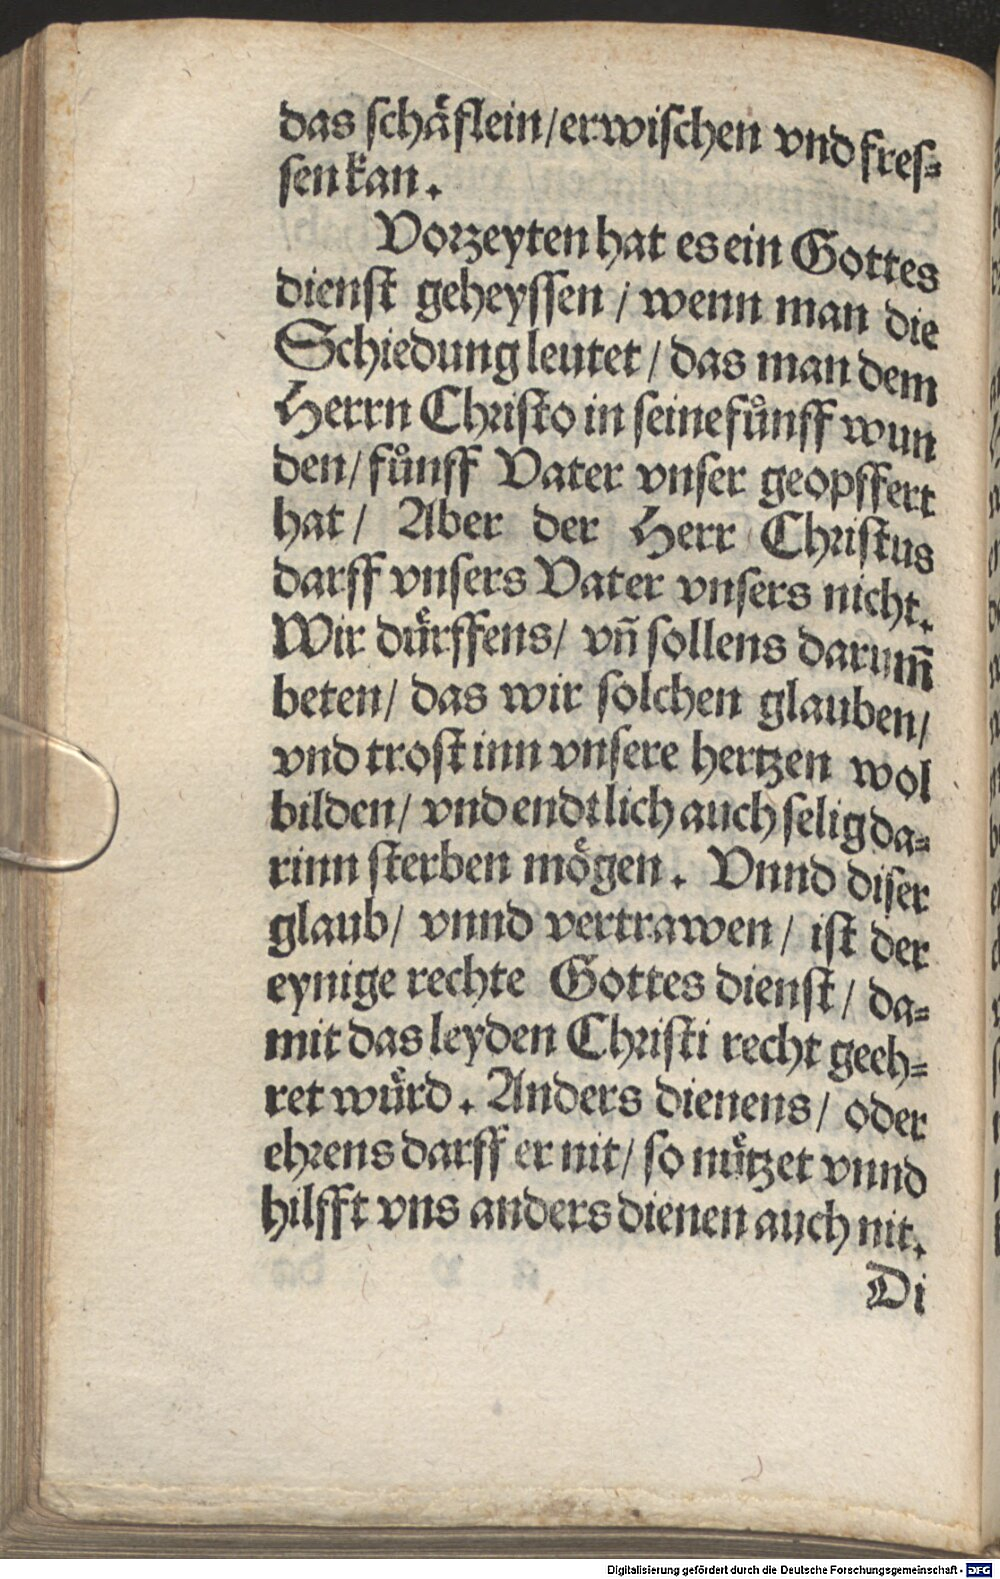 das schaͤflein/erwischen vnd fres⸗
sen kan.
Vorzeyten hat es ein Gottes
dienst geheyssen / wenn man die
Schiedung leutet / das man dem
Herrn Christo in seine fuͤnff wun
den/ fuͤnff Vater vnser geopffert
hat / Aber der Herr Christus
darff vnsers Vater vnsers nicht.
Wir duͤrffens/ vñ sollens darum̃
beten/ das wir solchen glauben/
vnd trost inn vnsere hertzen wol
bilden/ vnd endtlich auch selig da⸗
rinn sterben moͤgen. Vnnd diser
glaub/ vnnd vertrawen / ist der
eynige rechte Gottes dienst / da⸗
mit das leyden Christi recht geeh⸗
ret wuͤrd. Anders dienens/ oder
ehrens darff er nit/ so nuͤtzet vnnd
hilfft vns anders dienen auch nit.
Di
Digitalisierung gefördert durch die Deutsche Forschungsgemeinschaft - DFG